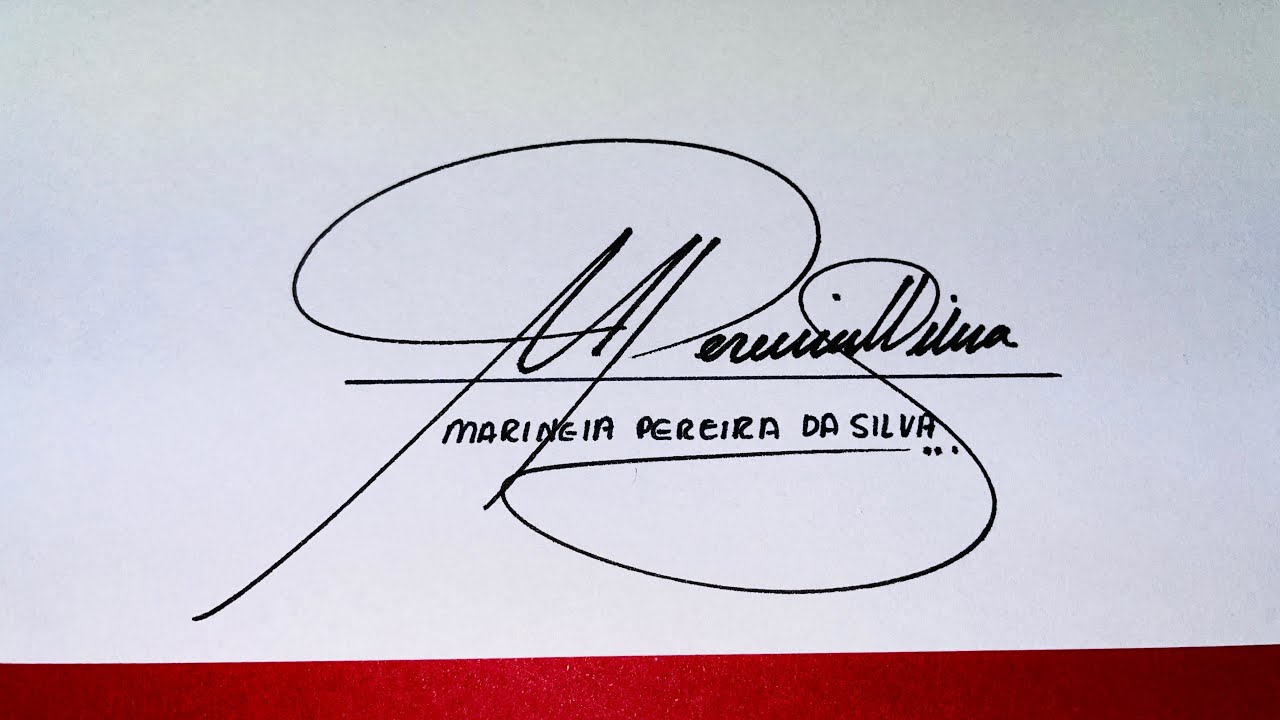 M Pereira Silva
MARINEIA PEREIRA DA SILVA